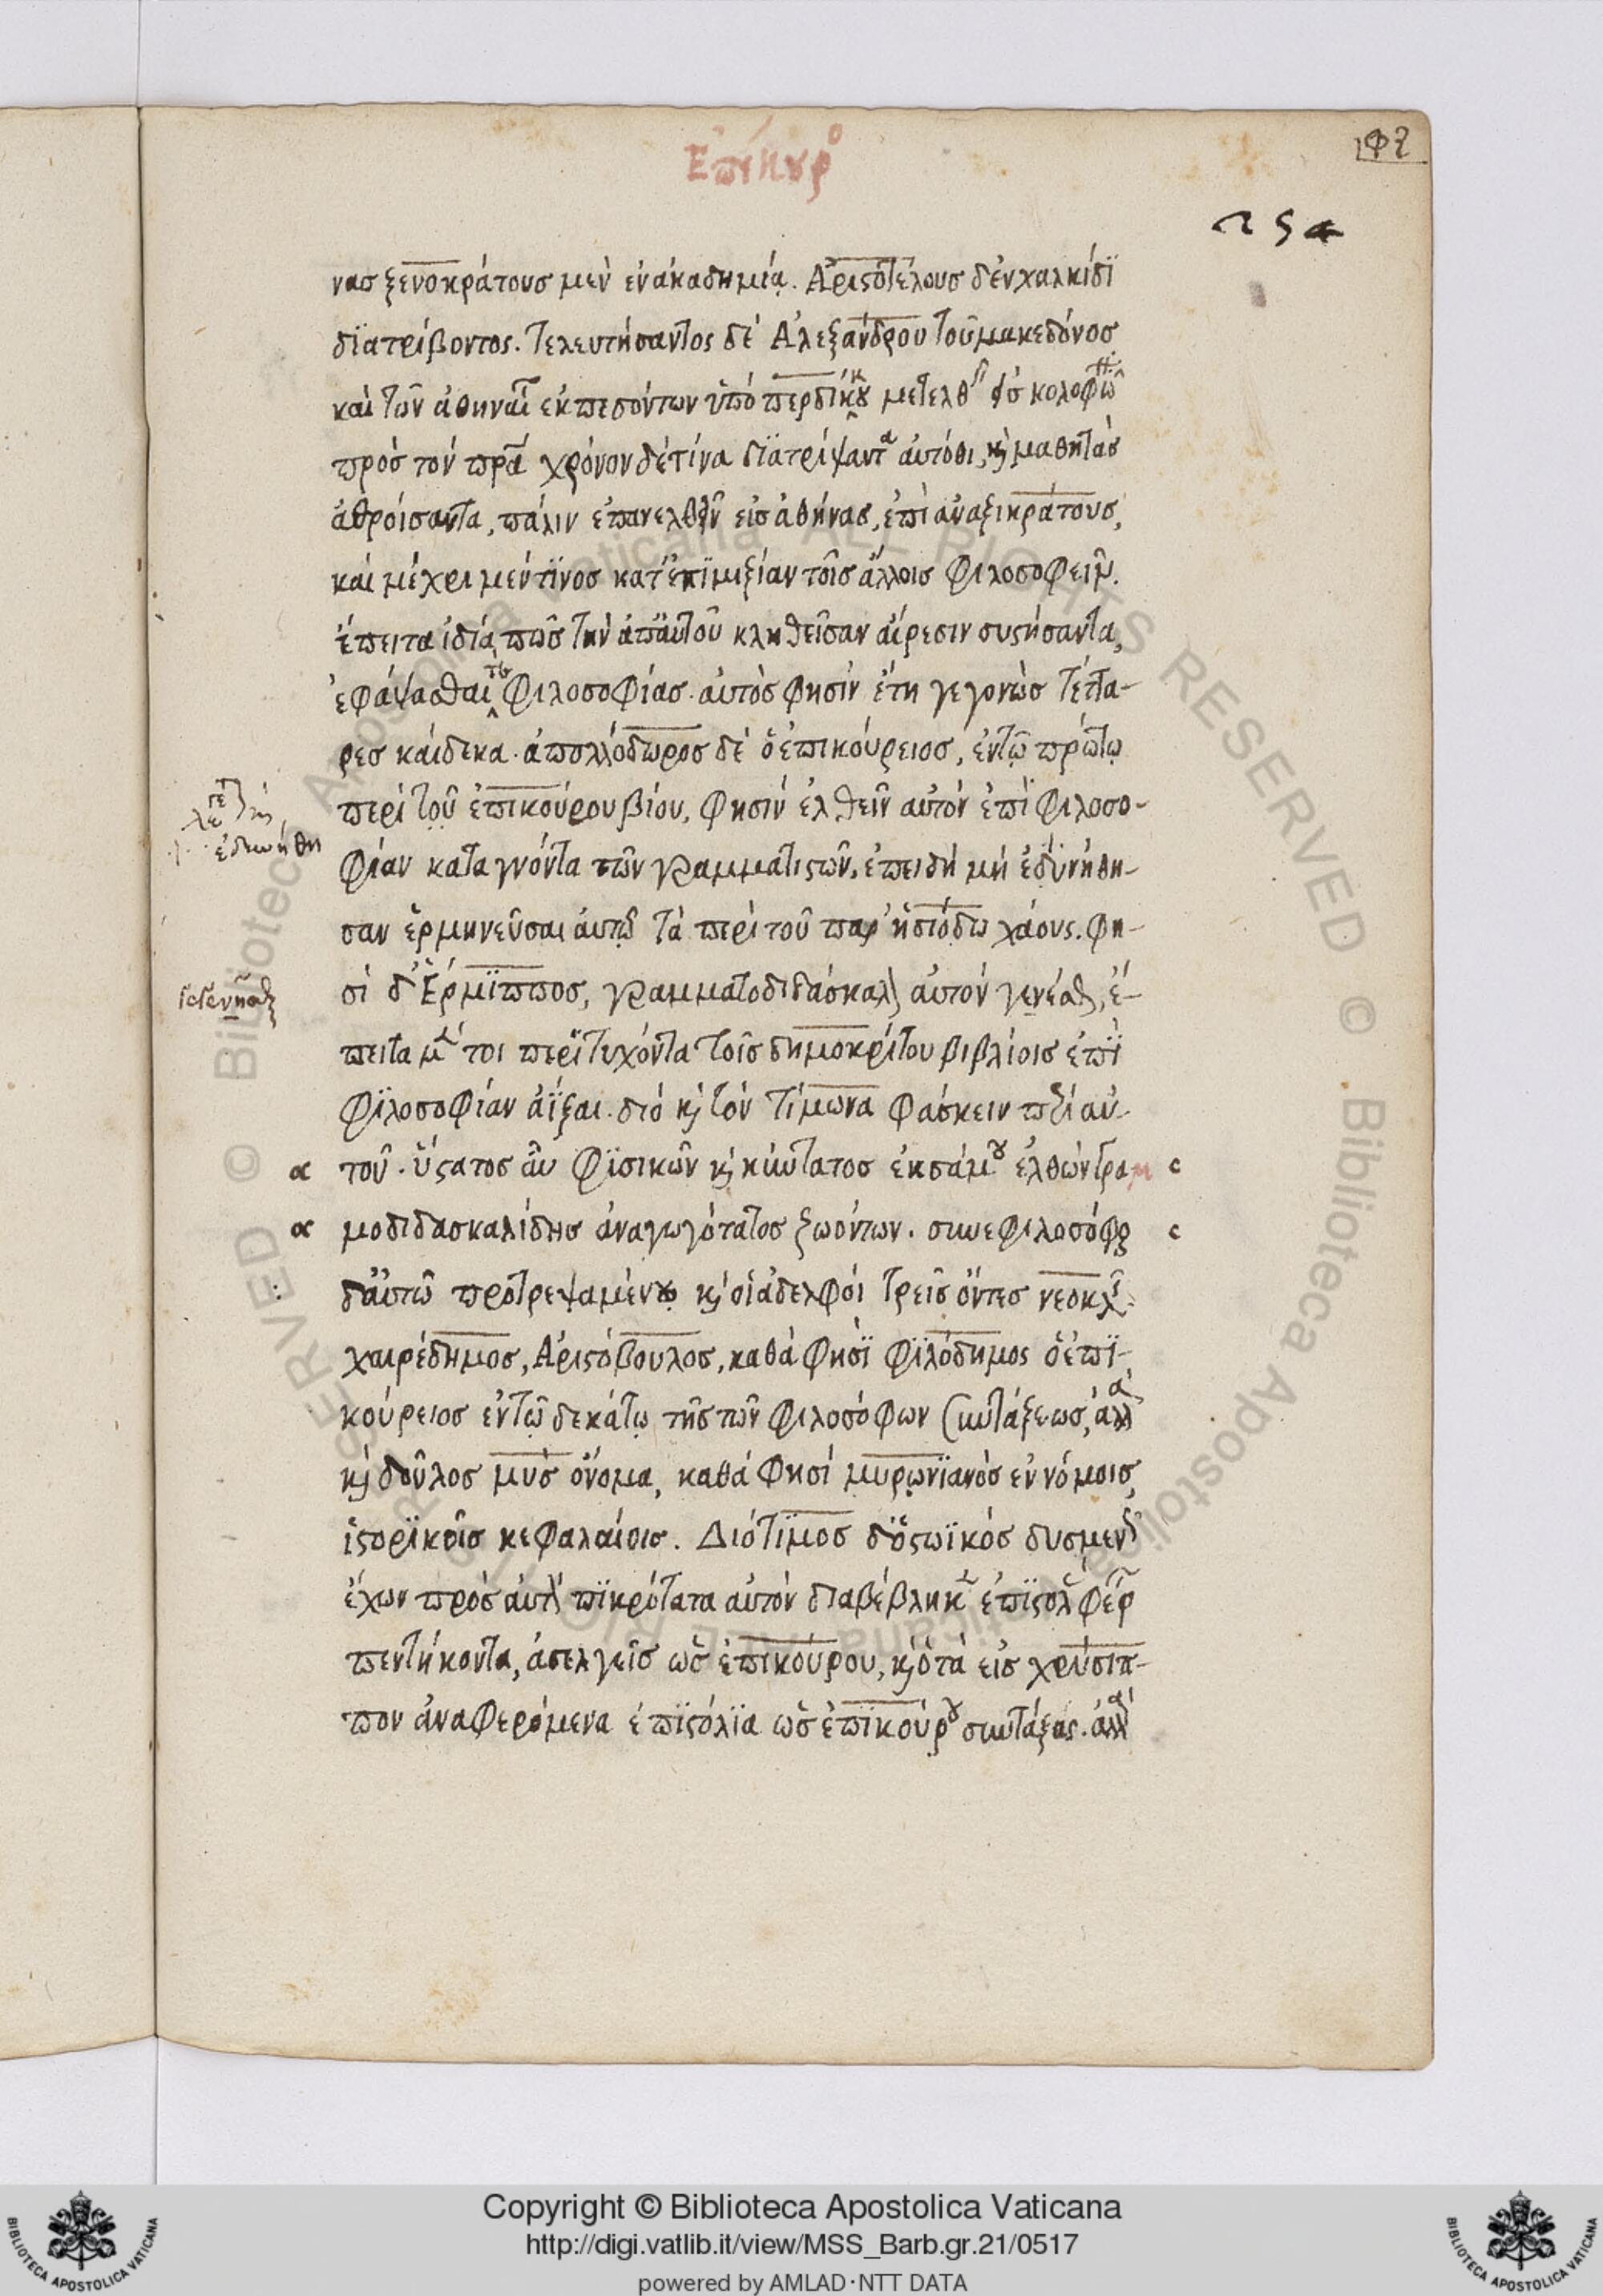 Ἐπίκουρο
νας ξενοκράτους μὲν ἐν ἀκαδημίᾳ. Ἀριστοτέλους δ' ἐν χαλκίδϊ
δϊατρίβοντος. τελευτήσαντος δὲ Ἀλεξάνδρου τοῦ μακεδόνος
καὶ τῶν ἀθηναί ἐκπεσόντων ὑπὸ περδίκκου μετελθ κολοφῶ
πρὸς τὸν πρα χρόνον δέ τινα δϊατρίψαντα αὐτόθι, κὶ μαθητὰς
ἀθροίσαντα, πάλιν ἐπανελθεῖν εἰς ἀθήνας, ἐπὶ ἀναξικράτους,
καὶ μέχρι μέν τϊνος κατ' ἐπϊμιξίαν τοῖς ἄλλοις φιλοσοφεῖν.
ἔπειτα ἰδίᾳ πως τὴν ἀπ' αὐτοῦ κληθεῖσαν αἵρεσιν συστήσαντα,
ἐφάψασθαι τῆς φιλοσοφίας. αὐτὸς φησὶν ἔτη γεγονὼς τέττα-
ρες καίδεκα. ἀπολλόδωρος δὲ ὁ ἐπικούρειος, ἐν τῷ πρώτῳ
περὶ τοῦ ἐπικούρου βίου, φησὶν ἐλθεῖν αὐτὸν ἐπὶ φιλοσο-
ἐδυνήθη
φίαν καταγνόντα τῶν γραμματιστῶν, ἐπειδὴ μὴ ἐδυνήθη-
σαν ἑρμηνεῦσαι αὐτῷ τὰ περὶ τοῦ παρ' ἡσιόδω χάους. φη-
γεγενῆσθαι
σὶ δ' Ἕρμϊππος, γραμματοδιδάσκαλον αὐτὸν γενέσθαι, ἔ-
πειτα μέν τοι περϊτυχόντα τοῖς δημοκρίτου βιβλίοις ἐπϊ
φϊλοσοφίαν ἀΐξαι. διὸ κὶ τὸν τίμωνα φάσκειν περὶ αὐ-
τοῦ. ὕστατος αὖ φϊσικῶν κὶ κύντατος ἐκ σάμου ἐλθὼν γραμ
μοδιδασκαλίδης ἀναγωγότατος ζωόντων. συνεφιλοσόφουν
δ' αὐτῶ προτρεψαμένου κὶ οἱ ἀδελφοὶ τρεῖς ὄντες νεοκλῆς
χαιρέδημος, Ἀριστόβουλος, καθά φησϊ φϊλόδημος ὁ ἐπϊ-
κούρειος ἐν τῷ δεκάτῳ τῆς τῶν φιλοσόφων συντάξεως, ἀλλὰ
κὶ δοῦλος μῦς ὄνομα, καθά φησὶ μυρωνϊανὸς ἐν νόμοις,
ἱστορϊκοῖς κεφαλαίοις. Διότϊμος δ' ὁ στωϊκὸς δυσμεν
ἔχων πρὸς αὐτὸν πϊκρότατα αὐτὸν διαβέβληκεν ἐπϊστολὰς φέρων
πεντήκοντα, ἀσελγεῖς ὡς ἐπικούρου, κὶ ὁ τὰ εἰς χρύσιπ-
πον ἀναφερόμενα ἐπϊστόλϊα ὡς ἐπϊκούρου συντάξας. ἀλλὰ
Copyright © Biblioteca Apostolica Vaticana
http://digi.vatlib.it/view/MSS_Barb.gr.21/0517
powered by AMLAD·NTT DATA